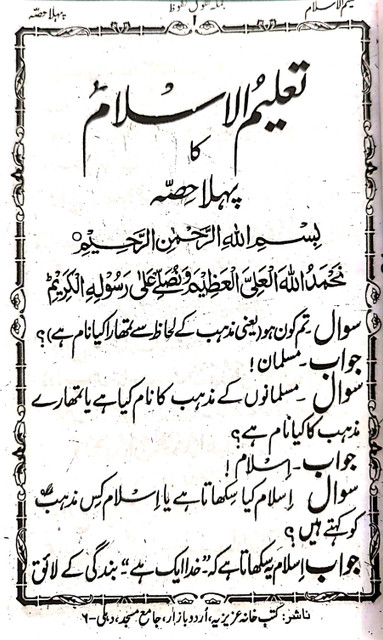 تعلیم الاسلام
جملہ حقوق محفوظ
پہلا حصّہ
۱
تعلیمُ الاسلام
کا
پہلا حِصّہ
بِسْمِ اللهِ الرَّحْمٰنِ الرَّحِیْمِ○
نَحْمَدُ اللهَ الْعَلِیَّ الْعَظِیْمَ وَنُصَلِّیْ عَلٰی رَسُوْلِهِ الْکَرِیْمِ ط
سوال۔ تم کون ہو (یعنی مذہب کے لحاظ سے تمھارا کیا نام ہے)؟
جواب۔ مسلمان!
سوال۔ مسلمانوں کے مذہب کا نام کیا ہے یا تمھارے
مذہب کا کیا نام ہے؟
جواب۔ اِسلام!
سوال اِسلام کیا سِکھاتا ہے یا اِسلام کِس مذہب
کو کہتے ہیں؟
جواب اِسلام یہ سِکھاتا ہے کہ ”خدا ایک ہے“۔ بندگی کے لائق
ناشر: کتب خانہ عزیزیہ، اُردو بازار، جامع مسجد، دہلی-۶